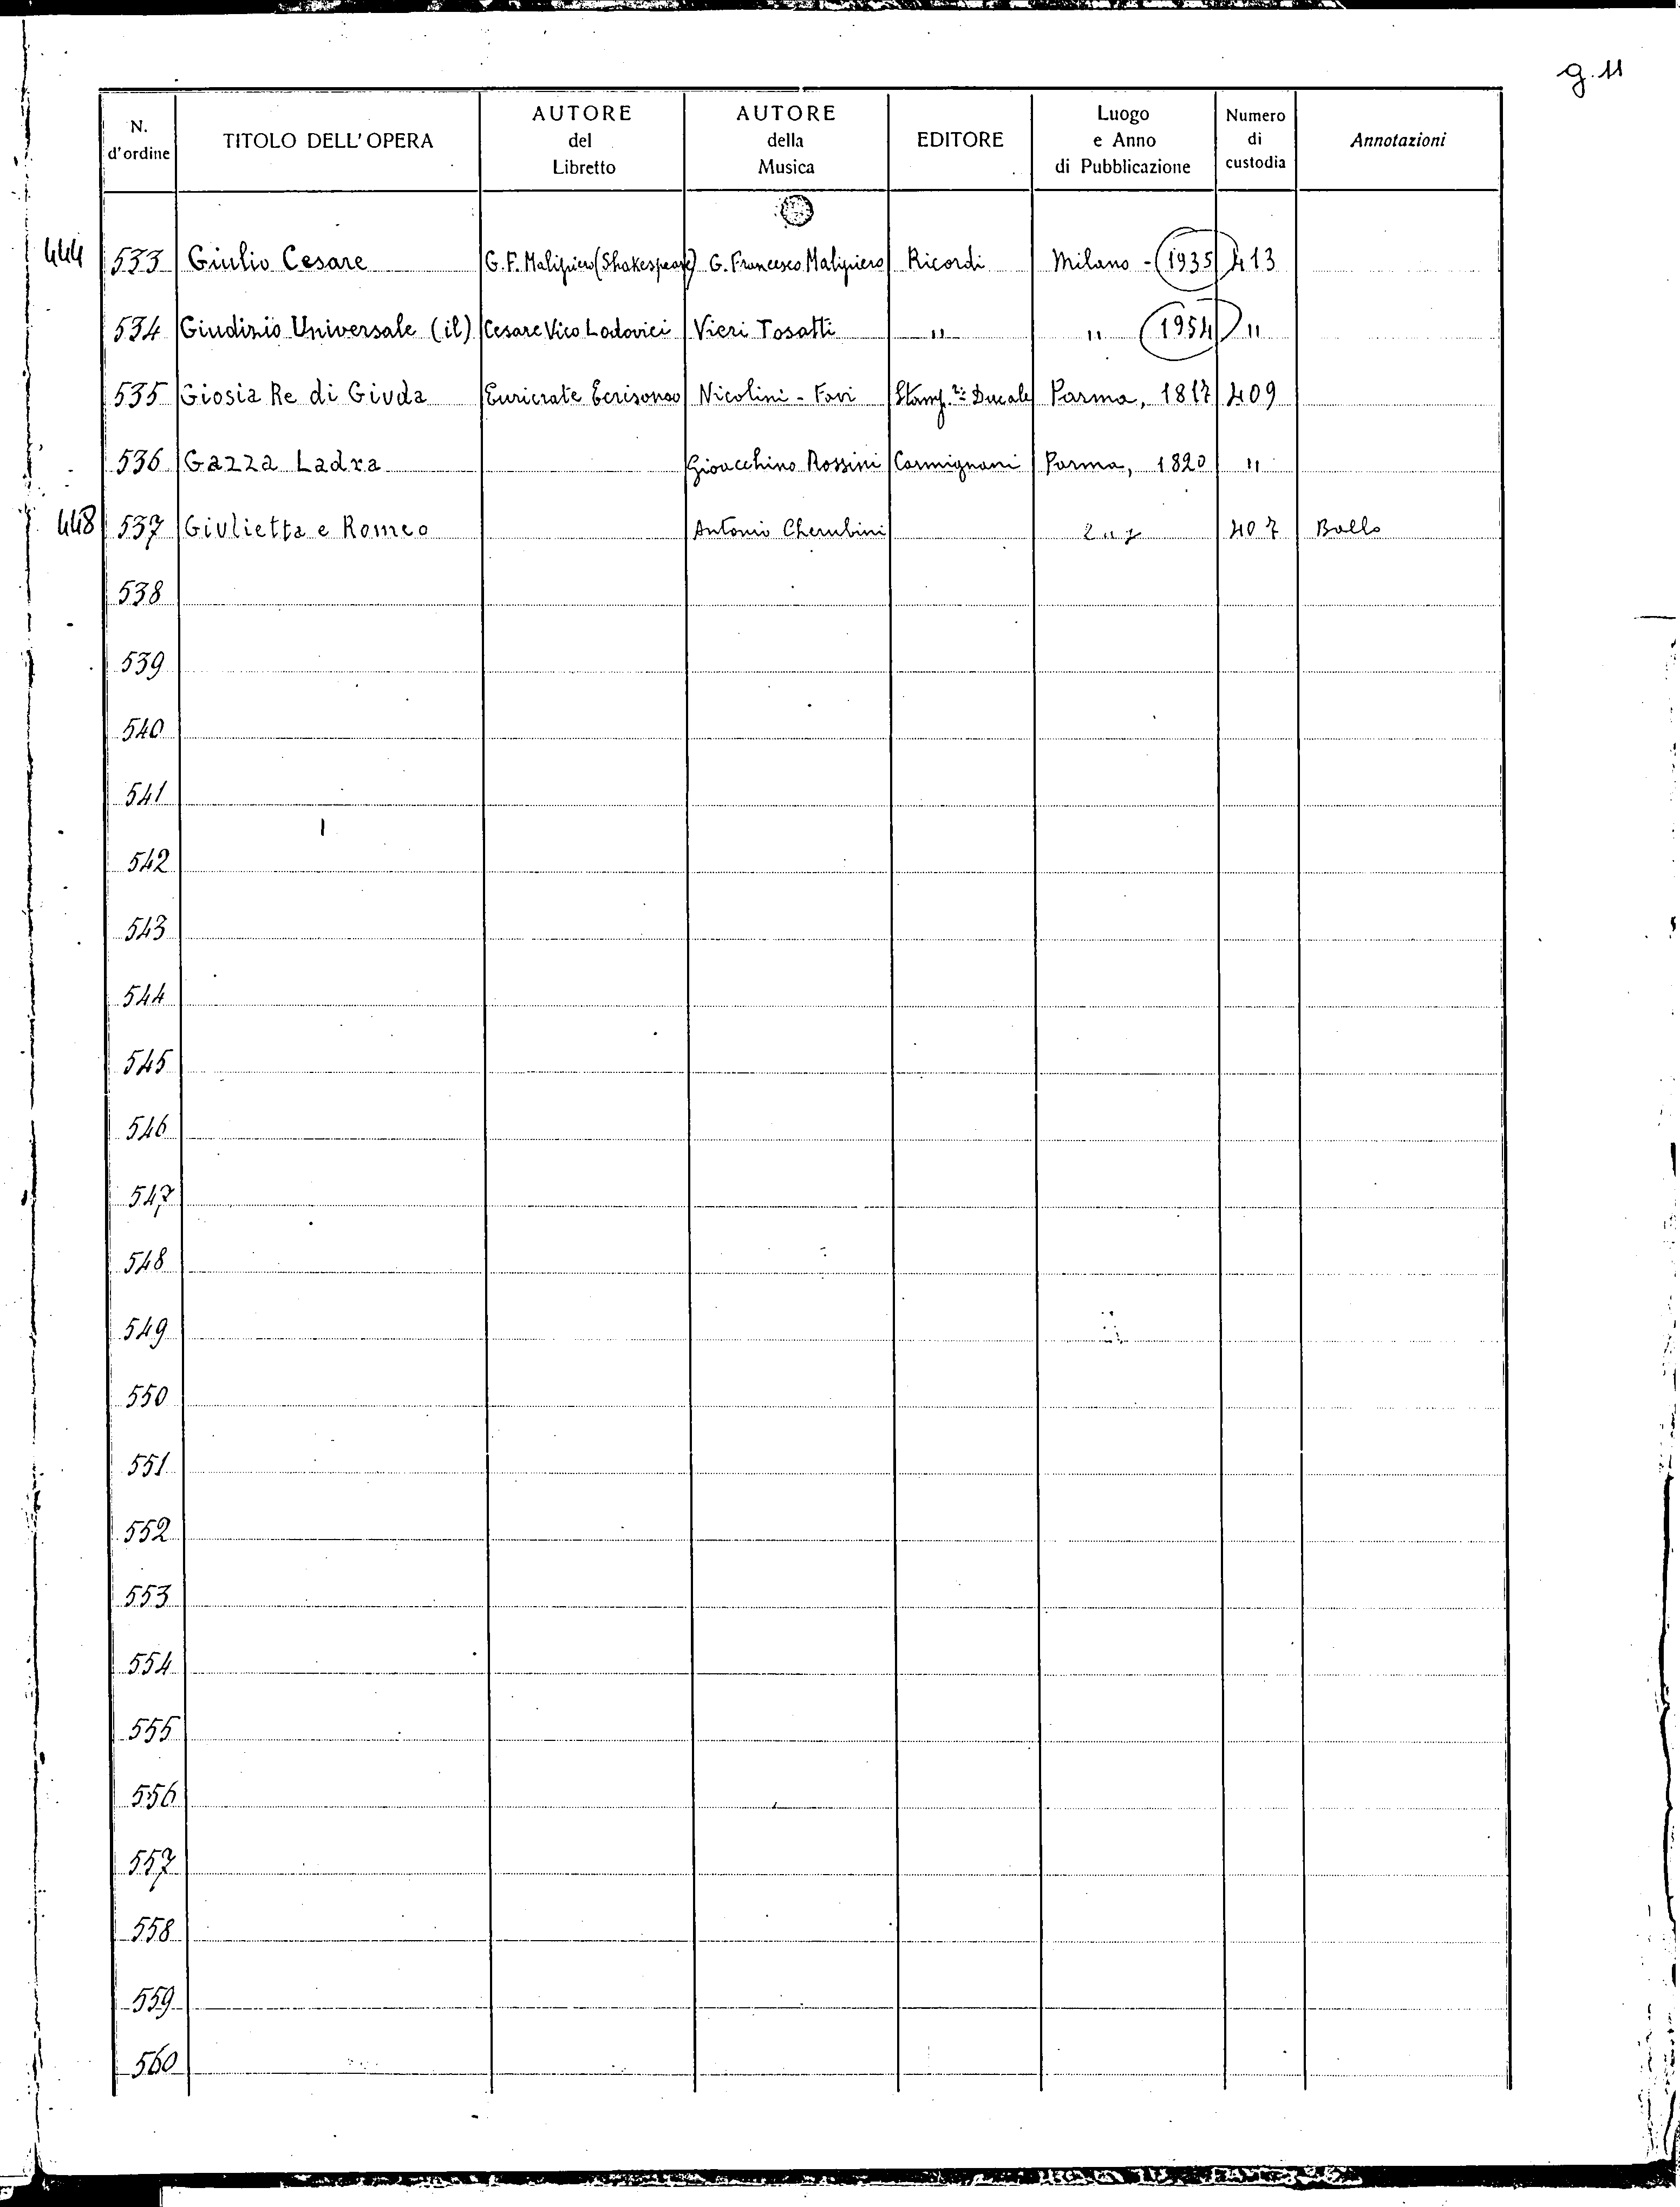 g. 11
N. d'ordine TITOLO DELL'OPERA AUTORE del Libretto AUTORE della Musica EDITORE Luogo e Anno di Pubblicazione Numero di custodia Annotazioni
444 533 Giulio Cesare G. F. Malipiero (Shakespeare) G. Francesco Malipiero Ricordi Milano - 1935 413
534 Giudizio Universale (il) Cesare Vico Lodovici Vieri Tosatti " " 1954 "
535 Giosia Re di Giuda Euricrate Nicolini - Favi Stamp. Ducale Parma, 1817 409
536 Gazza Ladra Gioacchino Rossini Carmignani Parma, 1820 "
448 537 Giulietta e Romeo Antonio Cherubini 407 Ballo
538
539
540
541
542
543
544
545
546
547
548
549
550
551
552
553
554
555
556
557
558
559
560